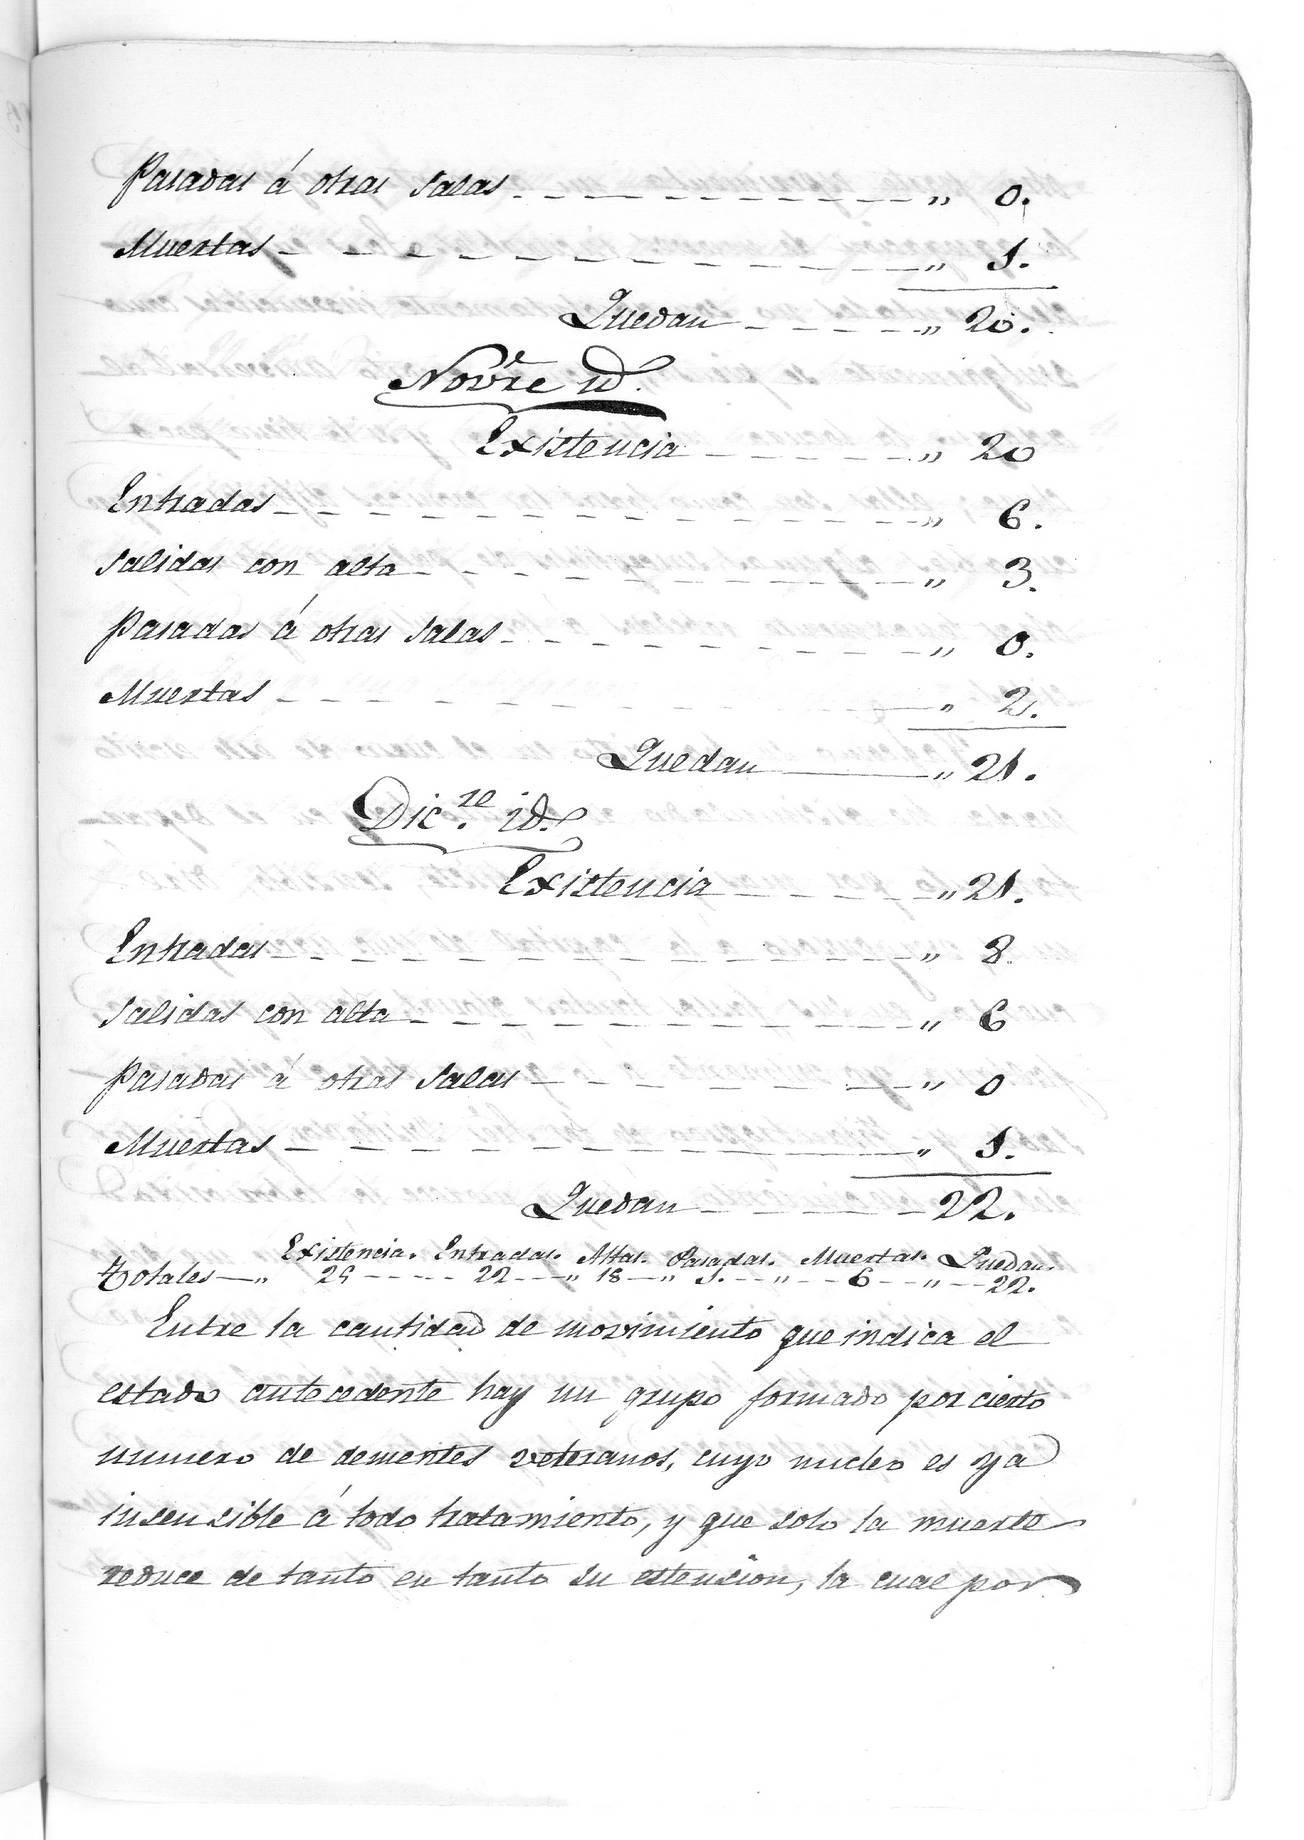 Pasadas á otras salas - - - - - - - - - - " 0.
Muertas - - - - - - - - - - - - - " 1.
Quedan - - - - - " 20.
Novre id.
Existencia - - - - - - " 20
Entradas - - - - - - - - - - - - - " 6.
Salidas con alta - - - - - - - - - - " 3.
Pasadas á otras salas - - - - - - - - " 0.
Muertas - - - - - - - - - - - - - " 2.
Quedan - - - - - " 21.
Dic.re id.
Existencia - - - - - " 21.
Entradas - - - - - - - - - - - - - " 8.
Salidas con alta - - - - - - - - - - " 6
Pasadas á otras salas - - - - - - - - " 0
Muertas - - - - - - - - - - - - - " 1.
Quedan - - - - - - 22.
Existencia. Entradas. Altas. Pasadas. Muertas. Quedan.
Totales - " - - - - 22 - - " 18 - " 1. - - " - - 6 - - " - - 22.
Entre la cantidad de movimiento que indica el
estado antecedente hay un grupo formado por cierto
numero de dementes veteranos, cuyo nucleo es ya
insensible á todo tratamiento, y que solo la muerte
reduce de tanto en tanto su estension, la cual por